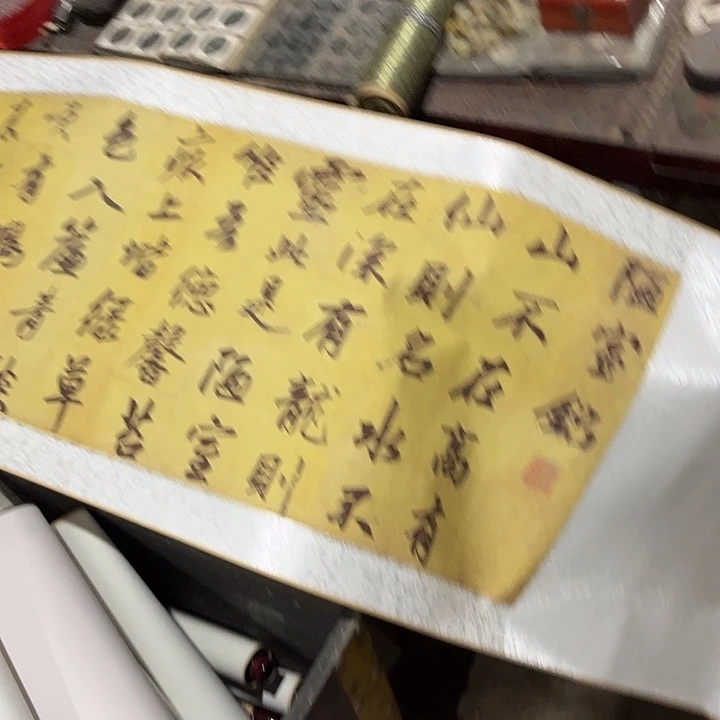 陋室銘
山不在高有
仙則名水不
在深有龍則
靈此是陋室
吾德馨苔
痕上階綠草
色入簾青